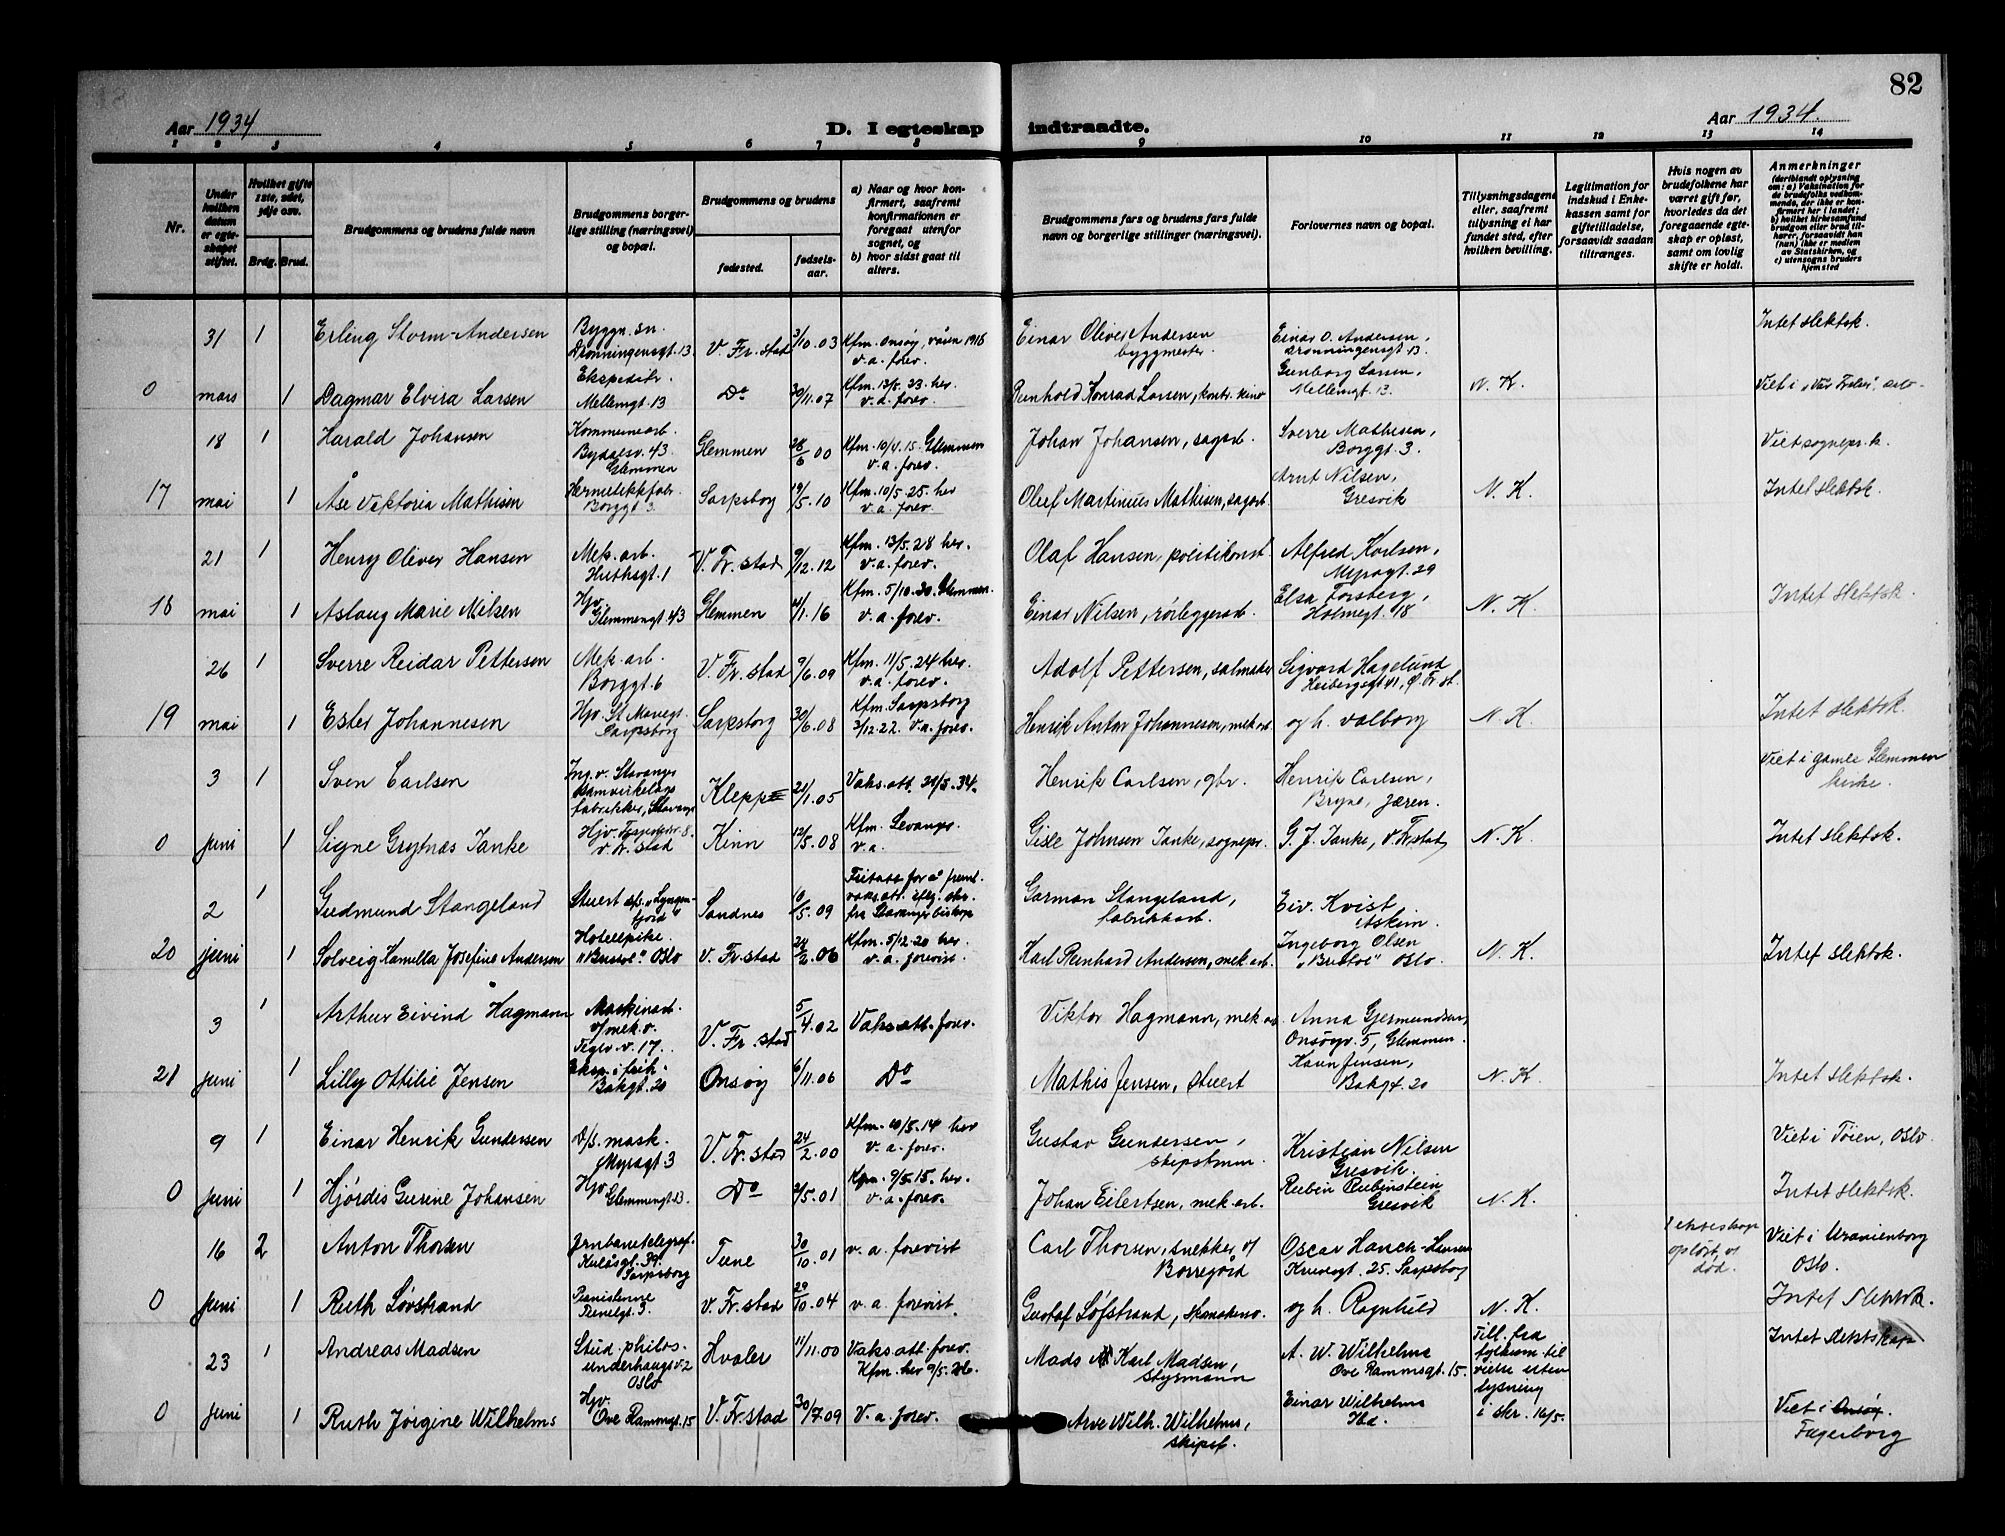 82
Aar 1934
D. I egteskap indtraadte.
Aar 1934.
1 2 3 4 5 6 7 8 9 10 11 12 13 14
Nr.
Under hvilken datum er egteskapet stiftet.
Hvilket gifte 1ste, 2det, 3dje osv.
Brdg. Brud.
Brudgommens og brudens fulde navn
Brudgommens borgerlige stilling (næringsvei) og bopæl.
Brudgommens og brudens
fødested.
fødselsaar.
a) Naar og hvor konfirmert, saafremt konfirmationen er foregaat utenfor sognet, og
b) hvor sidst gaat til alters.
Brudgommens fars og brudens fars fulde navn og borgerlige stillinger (næringsvei).
Forlovernes navn og bopæl.
Tillysningsdagene eller, saafremt tillysning ei har fundet sted, efter hvilken bevilling.
Legitimation for indskud i Enkekassen samt for giftetilladelse, forsaavidt saadan tiltrænges.
Hvis nogen av brudefolkene har været gift før, hvorledes da det foregaaende egteskap er opløst, samt om lovlig skifte er holdt.
Anmerkninger
(deriblandt oplysning om: a) Vaksination for de brudefolks vedkommende, der ikke er konfirmert her i landet; b) hvilket kirkesamfund brudgom eller brud tilhører, forsaavidt han (hun) ikke er medlem av Statskirken, og c) utensogns bruders hjemsted
31 1 Erling Storm-Andersen Byggn.sn. Dronningensgt. 13 V. Fr.stad 3/10.03 Kfm. Onsøy, våren 1918 v.a. forev. Einar Oliver Andersen byggmester. Einar O. Andersen, Dronningensgt 13. Intet slektsk.
0 mars 1 Dagmar Elvira Larsen Ekspeditr. Mellemgt. 13 Do 29/11.07 Kfm. 13/5. 23. her. v.a. forev. Reinhold Konrad Larsen, kontr. kino Gunborg Larsen, Mellemgt. 13. N.K. Viet i "Vår Frelser", Oslo
18 1 Harald Johansen Kommunearb. Bydalsv. 43. Glemmen Glemmen 28/6 00 Kfm. 10/4. 15. Glemmen v.a. forev. Johan Johansen, sagarb. Sverre Mathisen, Borggt. 3. Viet sognepr. k.
17 mai 1 Åse Viktoria Mathisen Hermetikkfabr. Borggt 3. Sarpsborg 19/5.10 Kfm. 10/5. 25. her v.a. forev. Oluf Martinius Mathisen, sagarb Arnt Nilsen, Gresvik N.K. Intet slektsk.
21 1 Henry Oliver Hansen Mek. arb. Huthsgt. 1 V. Fr.stad 9/12.12 Kfm. 13/5.28 her. v.a. forev. Olaf Hansen, politikonst. Alfred Karlsen, Myragt. 29
18 mai 1 Aslaug Marie Nilsen Hjv. Glemmengt. 43 Glemmen 4/1.16 Kfm. 5/10.30. Glemmen. v.a. forev. Einar Nilsen, rørleggerarb. Elsa Forsberg, Holmegt. 18 N.K. Intet slektsk.
26 1 Sverre Reidar Pettersen Mek. arb. Borggt. 6 V. Fr.stad 9/6.09 Kfm. 11/5.24 her. v.a. forev. Adolf Pettersen, salmaker Sigvard Hagelund Heibergsgt 41, Ø. Fr.st.
19 mai 1 Ester Johannesen Hjv. St. Mariegt. Sarpsborg Sarpsborg 30/6.08 Kfm. Sarpsborg 3/12.22. v.a. forev. Henrik Anton Johannesen, mek. arb og h. Valborg N.K. Intet slektsk.
3 1 Sven Carlsen Ing. v. Stavanger samvirkelags fabrikker, Stavanger Klepp 21/1.05 Vaks. att. 21/5.34. Henrik Carlsen, gbr. Henrik Carlsen, Bryne, Jæren. Viet i gamle Glemmen kirke.
0 juni 1 Signe Grytnæs Tanke Hjv. v. Fr. stad Kinn 12/5.08 Kfm. Levanger. v.a. Gisle Johnsen Tanke, sognepr. G. J. Tanke, v. Fr.stad N.K. Intet slektsk.
2 1 Gudmund Stangeland Stuert d/s. "Lyngenfjord" Sandnes 10/5.09 Fritatt for å freml. vaks. att. iflg. skr. fra Stavanger biskop Garman Stangeland, fabrikkarb. Eiv. Kvist Askim.
20 juni 1 Solveig Kamilla Josefine Andersen Hotellpike "Bristol" Oslo V. Fr.stad 24/2.06 Kfm. 5/12.20 her v.a. forevist. Karl Reinhard Andersen, mek. arb. Ingeborg Olsen "Bristol" Oslo. N.K. Intet slektsk.
3 1 Arthur Eivind Hagmann Maskinarb. v/mek. v. Teglv.v. 17. V. Fr. stad 5/4.02 Vaks. att. forev. Viktor Hagmann, mek. arb. Anna Gjermundsen, Onsøgv. 5, Glemmen.
21 juni 1 Lilly Ottilie Jensen Eksp. i frik. Bakgt. 20 Onsøy 6/11.06 Do Mathis Jensen, stuert Karin Jensen, Bakgt. 20 N.K. Intet slektsk.
9 1 Einar Henrik Gundersen D/s. mask. Myragt 3 V. Fr. stad 24/2.00 Kfm. 10/5.14 her v.a. forev. Gustav Gundersen, skipstmm. Kristian Nilsen Gresvik. Viet i Tøien, Oslo.
0 juni 1 Hjørdis Gurine Johansen Hjv. Glemmengt. 23. Do 2/5.01 Kfm. 9/5.15. her. v.a. forev. Johan Eilertsen, mek. arb. Rubin Rubinstein Gresvik N.K. Intet slektsk.
16 2 Anton Thorsen Jernbanetelegraf. Kulåsgt. 39. Sarpsborg Tune 30/10.01 v.a. forevist Carl Thorsen, snekker v/ Borregård Oscar Hanch-Hansen Kirkegt. 25. Sarpsborg 1 ekteskap opløst v. død. Viet i Uranienborg Oslo.
0 juni 1 Ruth Løvstrand Pianistinne 3. V. Fr. stad 29/10.04 v.a. forevist. Gustaf Løfstrand, og h. Ragnhild N.K. Intet slektsk.
23 1 Andreas Madsen Stud. philos. Underhaugsv. 2 Oslo Hvaler 11/11.00 Vaks. att. forev. Kfm. her 9/5.26. Mads Karl Madsen, styrmann A. W. Wilhelms Ove Rammsgt. 15. Till. fra fylkesm. til vielse uten lysning i skr. 16/5. Intet slektskap
0 juni 1 Ruth Jørgine Wilhelms Hjv. Ove Rammsgt. 15 V. Fr. stad 30/7.09 v.a. forev. Arve Wilh. Wilhelms, skipsf. Einar Wilhelms Ibd. Viet i Onsøy. Fagerborg